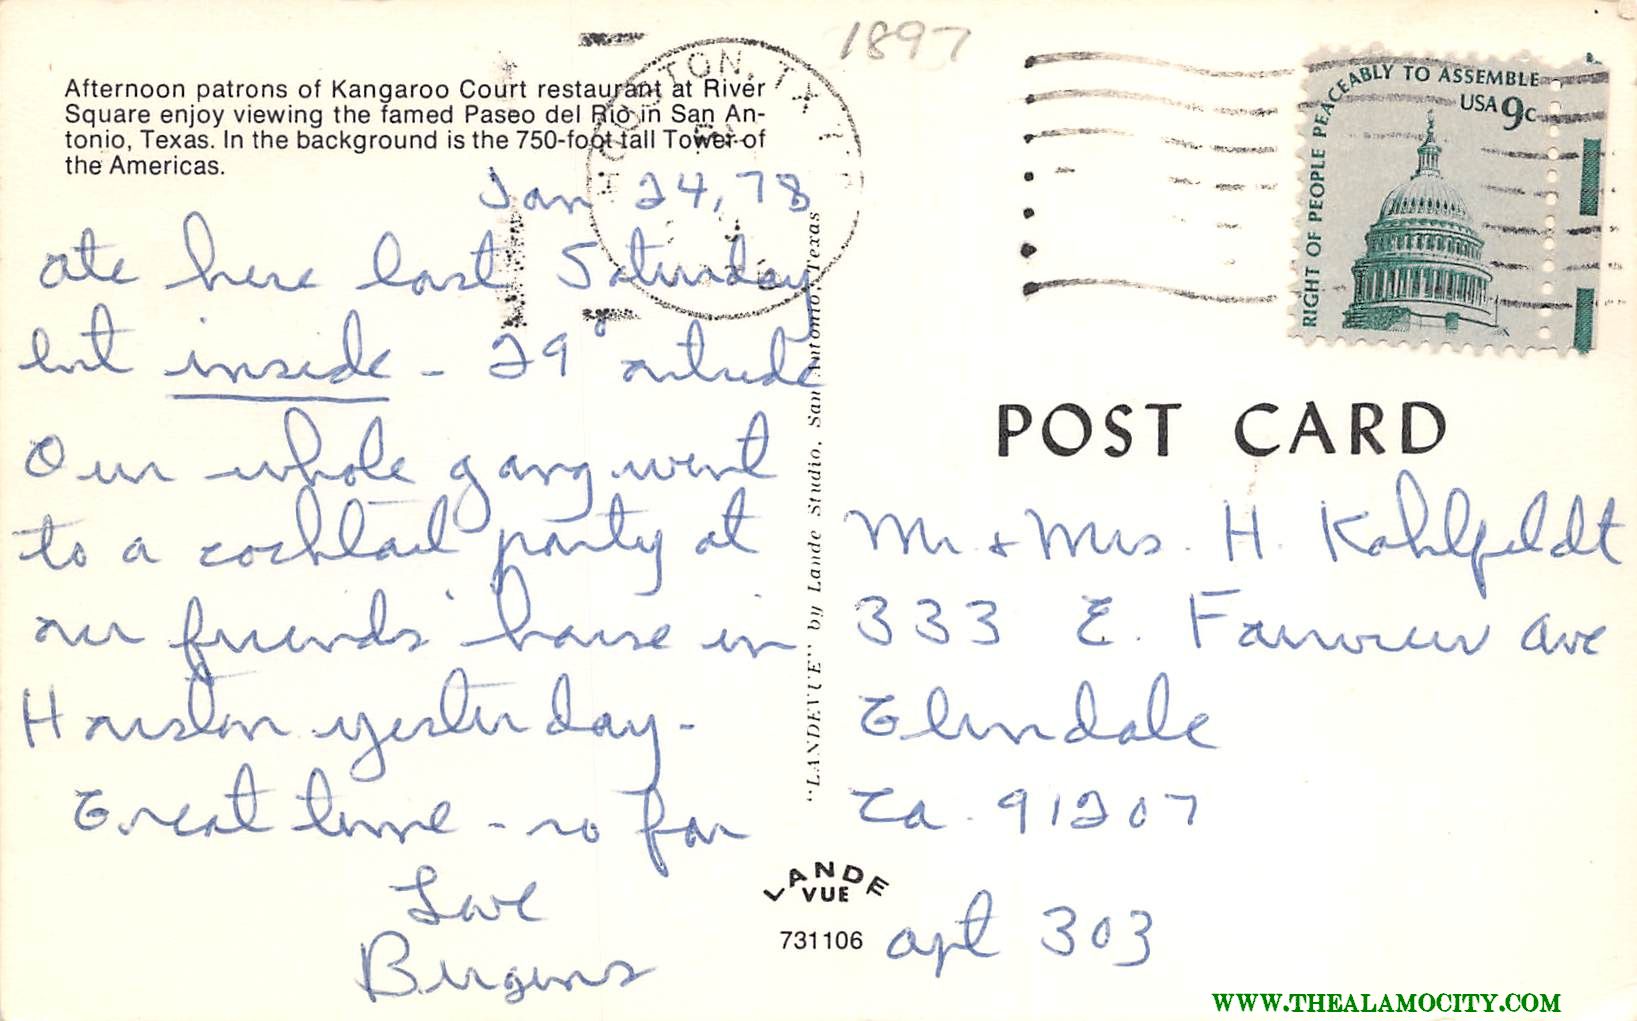 1897
Afternoon patrons of Kangaroo Court restaurant at River
Square enjoy viewing the famed Paseo del Rio in San An-
tonio, Texas. In the background is the 750-foot tall Tower of
the Americas.
HOUSTON, TX
RIGHT OF PEOPLE PEACEABLY TO ASSEMBLE
USA 9c
Jan 24, 78
ate here last Saturday
but inside - 29° outside
Our whole gang went
to a cocktail party at
our friends' house in
Houston yesterday -
Great time - so far
Love
Burgens
"LANDEVUE" by Lande Studio, San Antonio, Texas
POST CARD
Mr. & Mrs. H. Kohlfeldt
333 E. Fairview Ave
Glendale
Ca. 91207
apt 303
LANDE
VUE
731106
WWW.THEALAMOCITY.COM